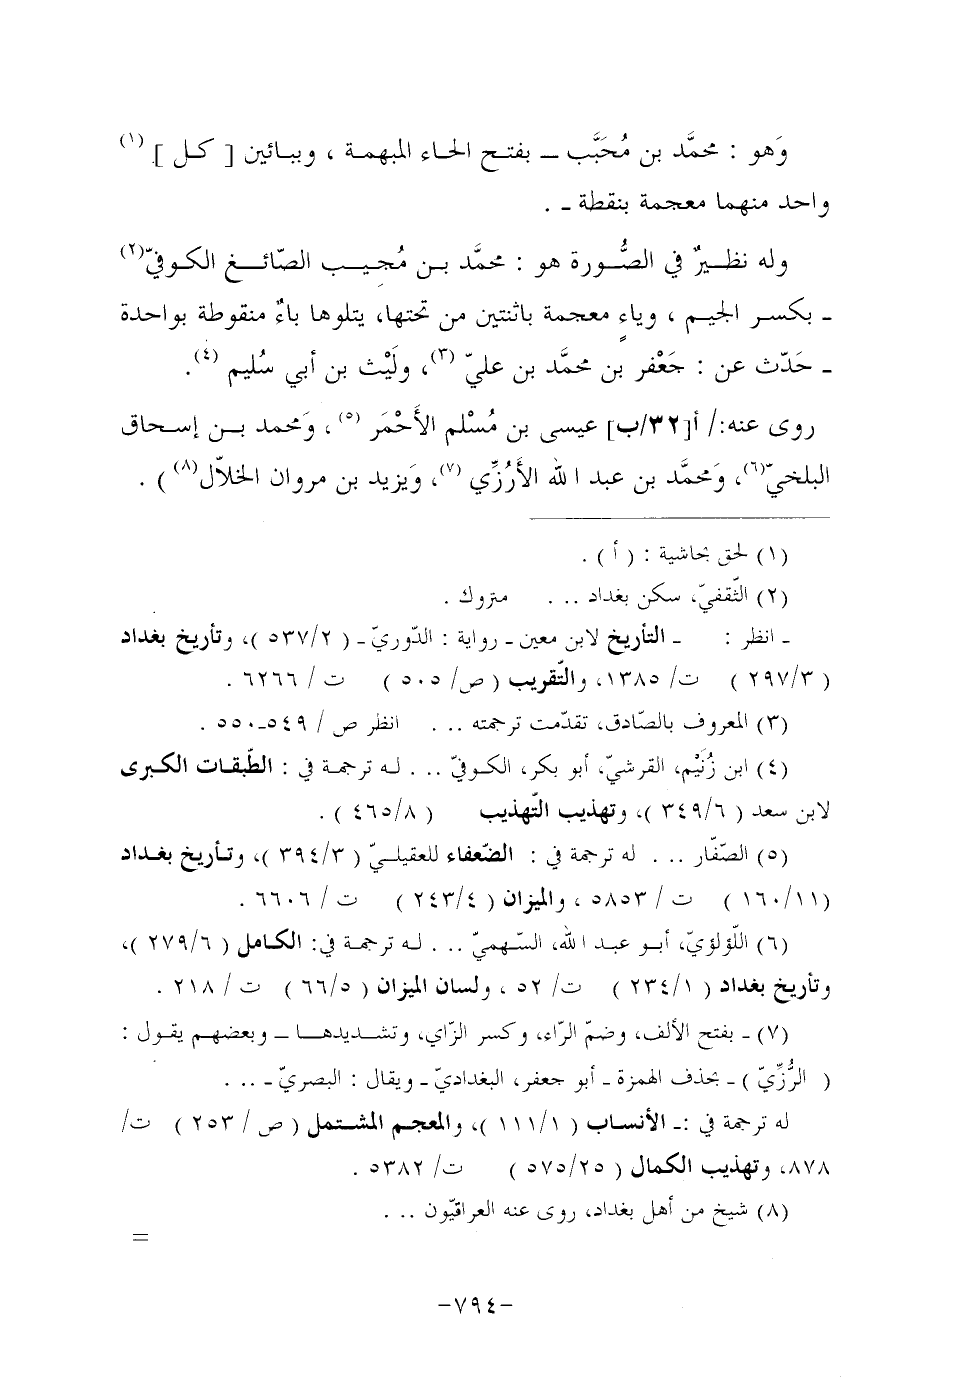 وَهو : محمَّد بن مُحَبَّب ــ بفتـح الحـاء المبهمـة ، وببـائين [ كـل ] (١)
واحد منهما معجمة بنقطة ـ .
وله نظـيرٌ في الصُّـورة هو : محمَّد بـن مُجيـب الصّائـغ الكـوفيّ(٢)
ـ بكسـر الجيـم ، وياءٍ معجمة باثنتين من تحتها، يتلوها باءٌ منقوطة بواحدة
ـ حَدّث عن : جَعْفر بن محمَّد بن عليّ (٣)، ولَيْث بن أبي سُليم (٤).
روى عنه:/ أ[٣٢/ب] عيسى بن مُسْلم الأَحْمَر (٥) ، وَمحمد بـن إسـحاق
البلخيّ(٦)، وَمحمَّد بن عبد الله الأَرُزِّي (٧)، وَيزيد بن مروان الخلاّل(٨) ) .
(١) لحق بحاشية : ( أ ) .
(٢) الثّقفيّ، سكن بغداد ... متروك .
ـ انظر : ـ التأريخ لابن معين ـ رواية : الدّوريّ ـ ( ٥٣٧/٢ )، وتأريخ بغداد
( ٢٩٧/٣ ) ت/ ١٣٨٥، والتّقريب ( ص/ ٥٠٥ ) ت / ٦٢٦٦ .
(٣) المعروف بالصّادق، تقدّمت ترجمته ... انظر ص / ٥٤٩ـ٥٥٠ .
(٤) ابن زُنَيْم، القرشيّ، أبو بكر، الكـوفيّ ... لـه ترجمـة في : الطّبقات الكبرى
لابن سعد ( ٣٤٩/٦ )، وتهذيب التّهذيب ( ٤٦٥/٨ ) .
(٥) الصّفّار ... له ترجمة في : الضّعفاء للعقيلـيّ ( ٣٩٤/٣ )، وتـأريخ بغـداد
(١٦٠/١١ ) ت / ٥٨٥٣ ، والميزان ( ٢٤٣/٤ ) ت / ٦٦٠٦ .
(٦) اللّؤلؤيّ، أبـو عبـد الله، السّهميّ ... لـه ترجمـة في: الكـامل ( ٢٧٩/٦ )،
وتأريخ بغداد ( ٢٣٤/١ ) ت/ ٥٢ ، ولسان الميزان ( ٦٦/٥ ) ت / ٢١٨ .
(٧) ـ بفتح الألف، وضمّ الرّاء، وكسر الزّاي، وتشـديدهـا ــ وبعضهـم يقـول :
( الرُّزِّيّ ) ـ بحذف الهمزة ـ أبو جعفر، البغداديّ ـ ويقال : البصريّ ـ ...
له ترجمة في :ـ الأنسـاب ( ١١١/١ )، والمعجـم المشـتمل ( ص / ٢٥٣ ) ت/
٨٧٨، وتهذيب الكمال ( ٥٧٥/٢٥ ) ت/ ٥٣٨٢ .
(٨) شيخ من أهل بغداد، روى عنه العراقيّون ...
=
-٧٩٤-